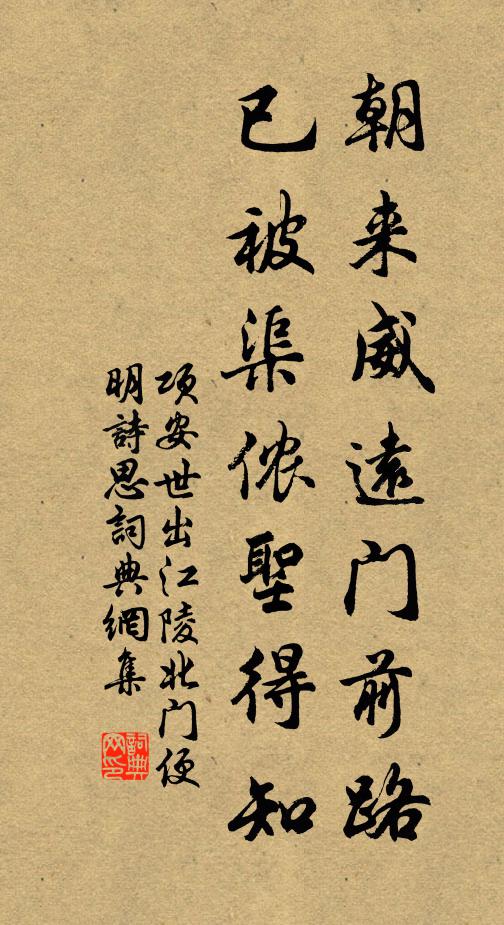 朝来威遠门前路
已被渠侬聖得知
项安世出江陵北门便
明詩思詞典網集
詞典
网印